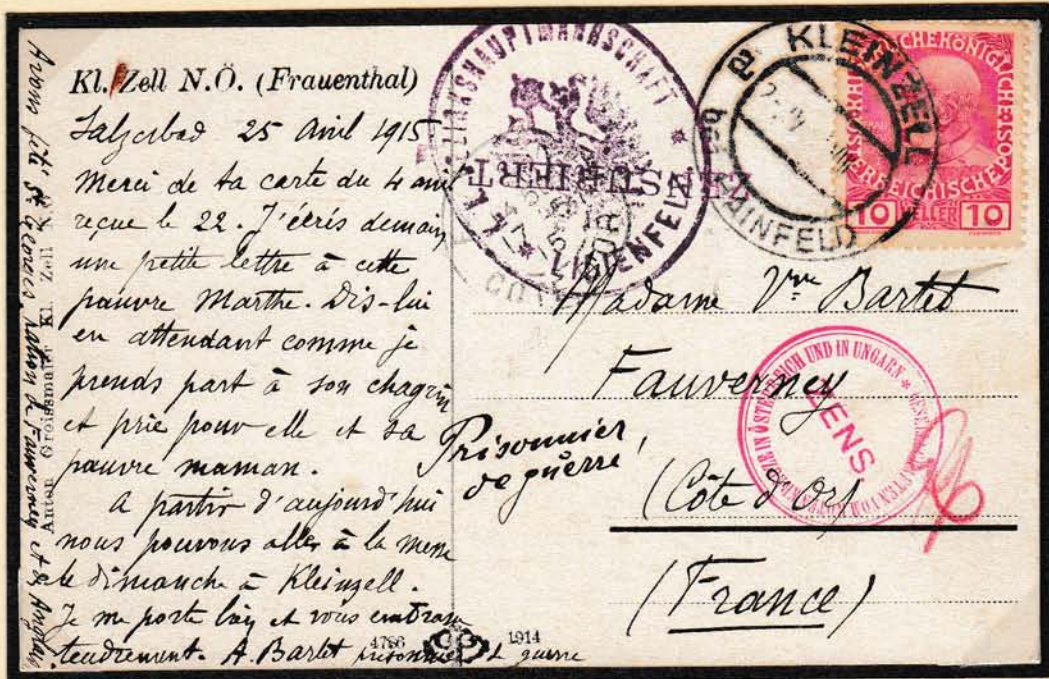 Kl. Zell N.Ö. (Frauenthal)
Salzerbad 25 Avril 1915
Merci de ta carte du 4 avril
reçue le 22. J'écris demain
une petite lettre à cette
pauvre Marthe. Dis-lui
en attendant comme je
prends part à son chagrin
et prie pour elle et sa
pauvre maman.
A partir d'aujourd'hui
nous pouvons aller à la messe
le dimanche à Kleinzell.
Je me porte bien et vous embrasse
tendrement. A. Bartet prisonnier de guerre
Avons fêté St Georges, patron de Fauverney et des Anglais
Anton Groissmair Kl. Zell N.
4766 1914
K.K. BEZIRKSHAUPTMANNSCHAFT * LILIENFELD *
ZENSURIERT
KLEINZELL
bei HAINFELD
10 HELLER 10
Madame Vve Bartet
Fauverney
Prisonnier
de guerre
(Côte d'Or)
(France)
ZENS
IN ÖSTERREICH UND IN UNGARN